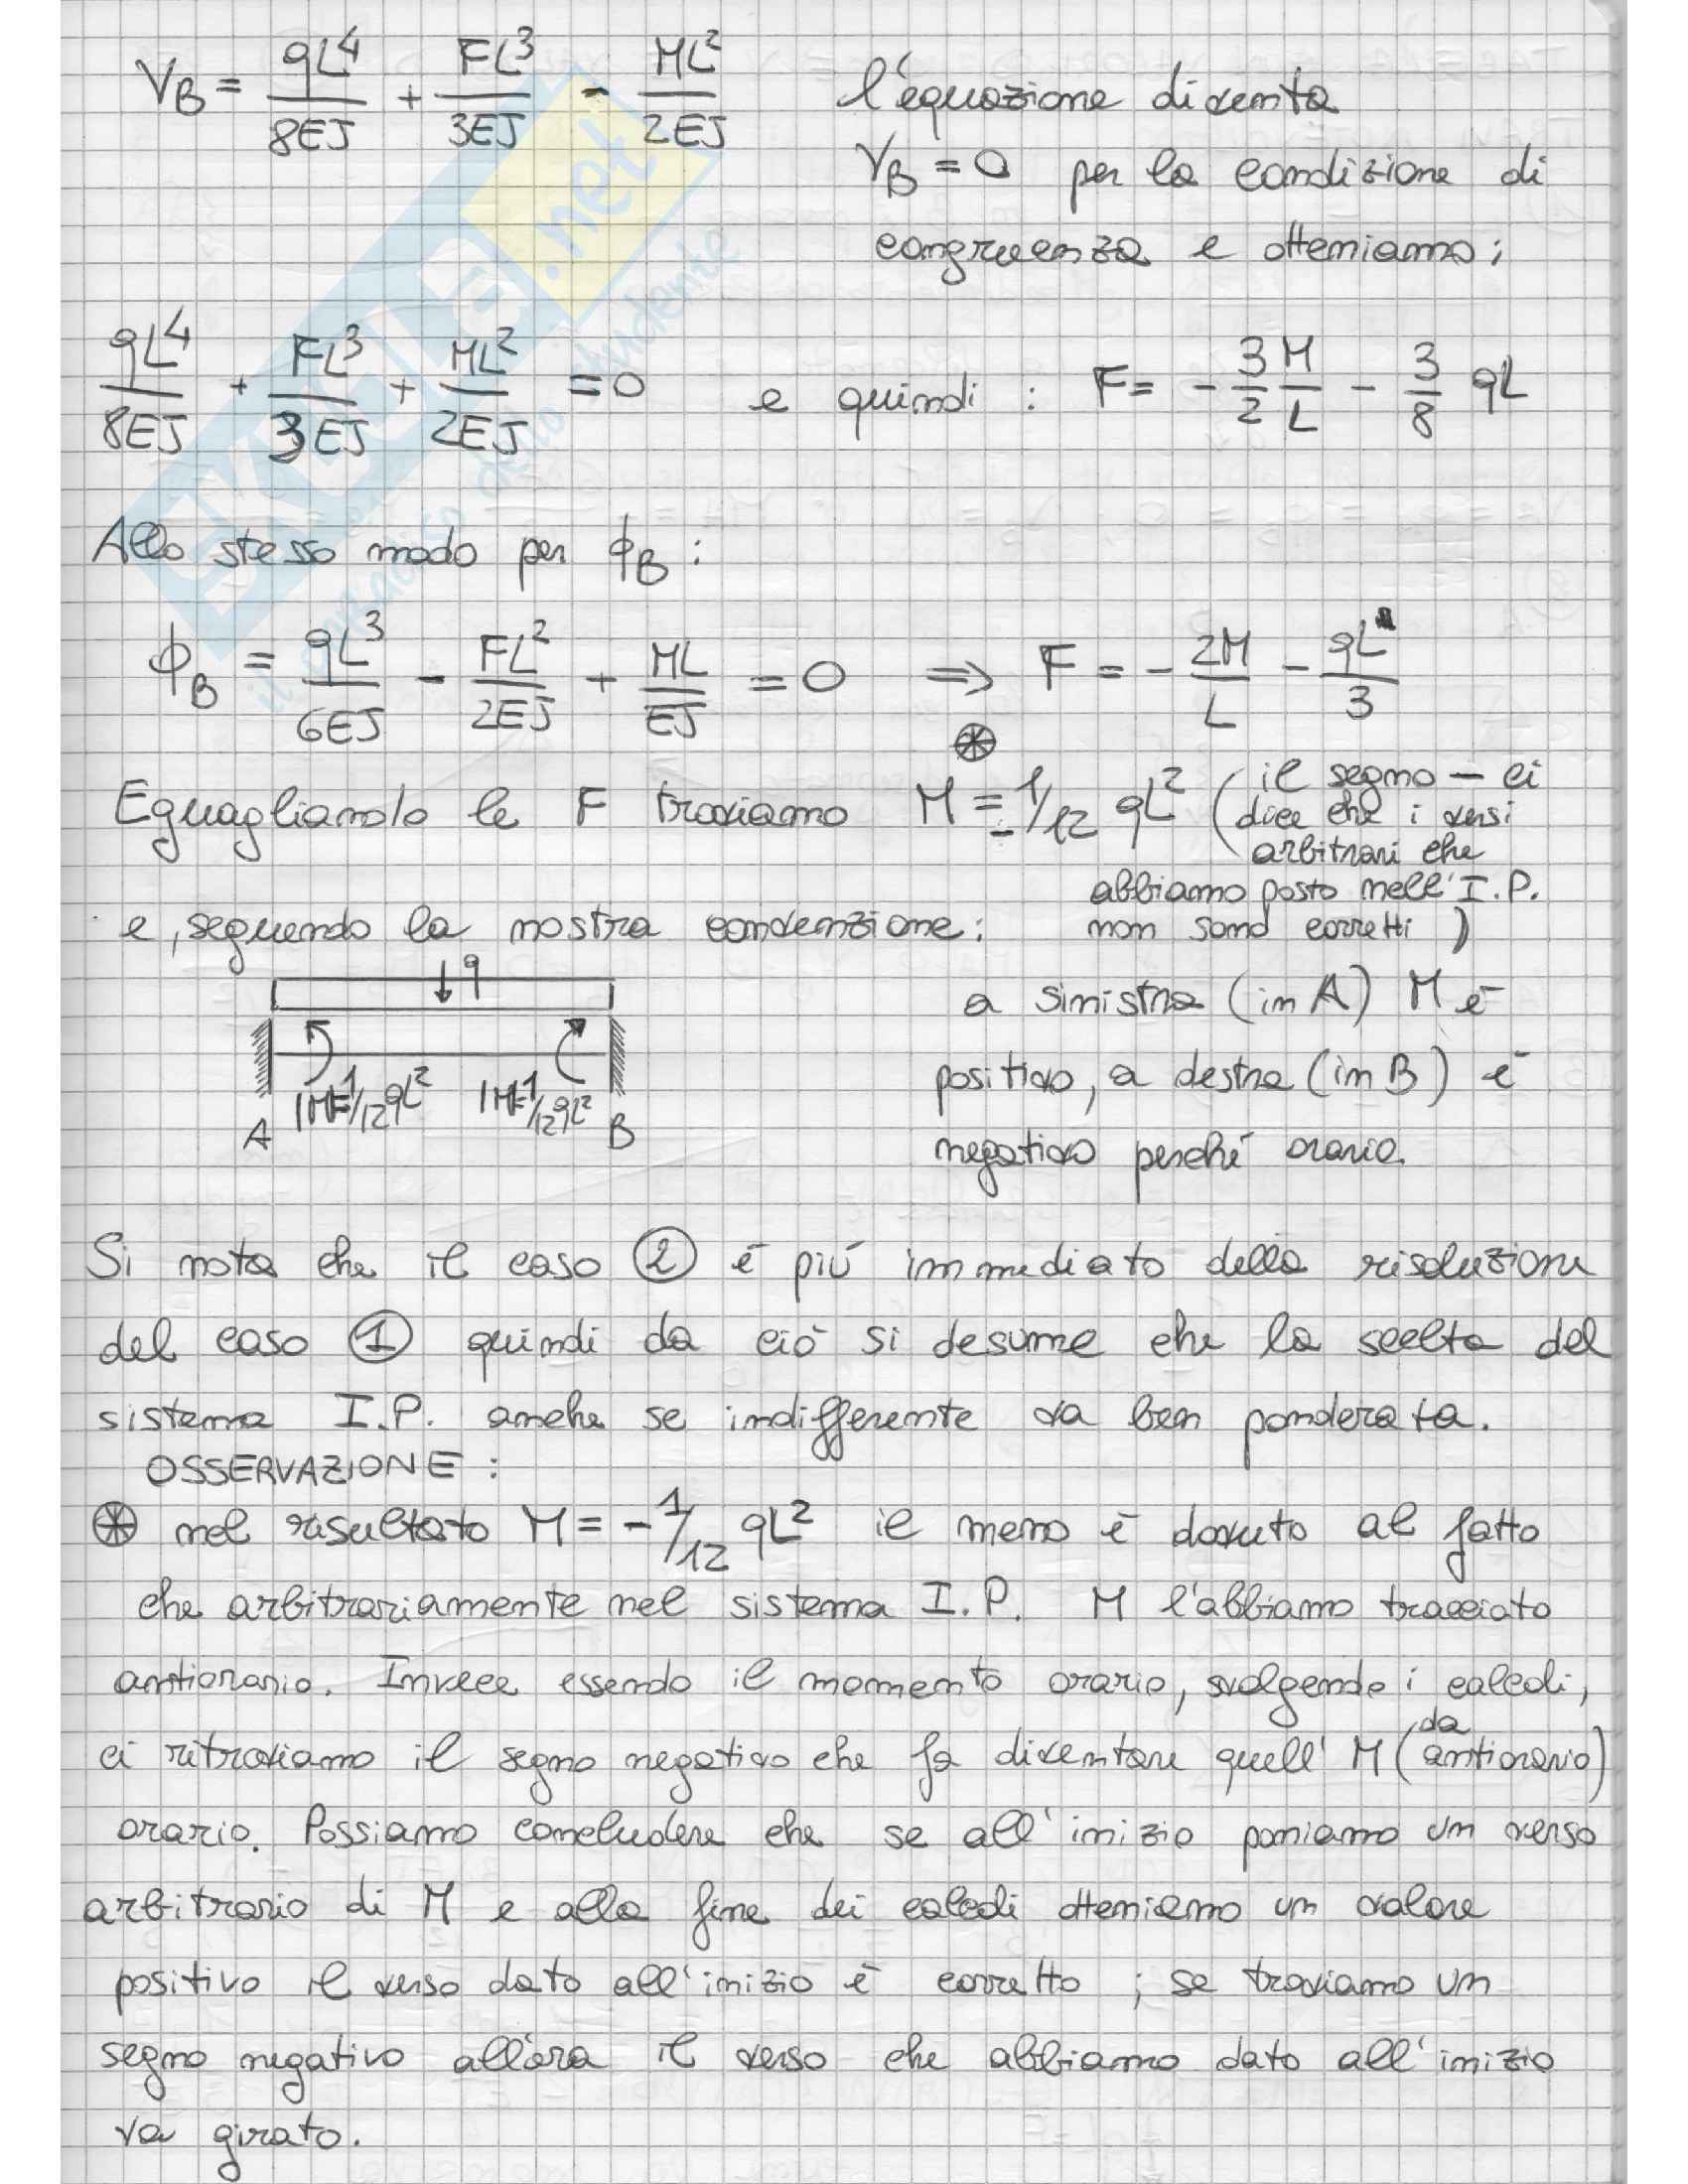 V_B = qL^4/8EJ + FL^3/3EJ - ML^2/2EJ l'equazione diventa
V_B = 0 per la condizione di
congruenza e otteniamo;
qL^4/8EJ + FL^3/3EJ + ML^2/2EJ = 0 e quindi : F = - 3/2 M/L - 3/8 qL
Allo stesso modo per ϕ_B :
ϕ_B = qL^3/6EJ - FL^2/2EJ + ML/EJ = 0 ⇒ F = - 2M/L - qL/3
⊛
Eguagliando le F troviamo M = -1/12 qL^2 (il segno - ci
dice che i versi
arbitrari che
abbiamo posto nell'I.P.
non sono corretti )
e, seguendo la nostra convenzione:
q
a sinistra (in A) M è
positivo, a destra (in B) è
negativo perché orario.
|M|=1/12 qL^2 |M|=1/12 qL^2
A B
Si nota che il caso ② è più immediato della risoluzione
del caso ① quindi da ciò si desume che la scelta del
sistema I.P. anche se indifferente va ben ponderata.
OSSERVAZIONE :
⊛ nel risultato M = -1/12 qL^2 il meno è dovuto al fatto
che arbitrariamente nel sistema I.P. M l'abbiamo tracciato
antiorario. Invece essendo il momento orario, svolgendo i calcoli,
ci ritroviamo il segno negativo che fa diventare quell' M (da antiorario)
orario. Possiamo concludere che se all'inizio poniamo un verso
arbitrario di M e alla fine dei calcoli otteniamo un valore
positivo il verso dato all'inizio è corretto ; se troviamo un
segno negativo allora il verso che abbiamo dato all'inizio
va girato.
SKUOLA.net